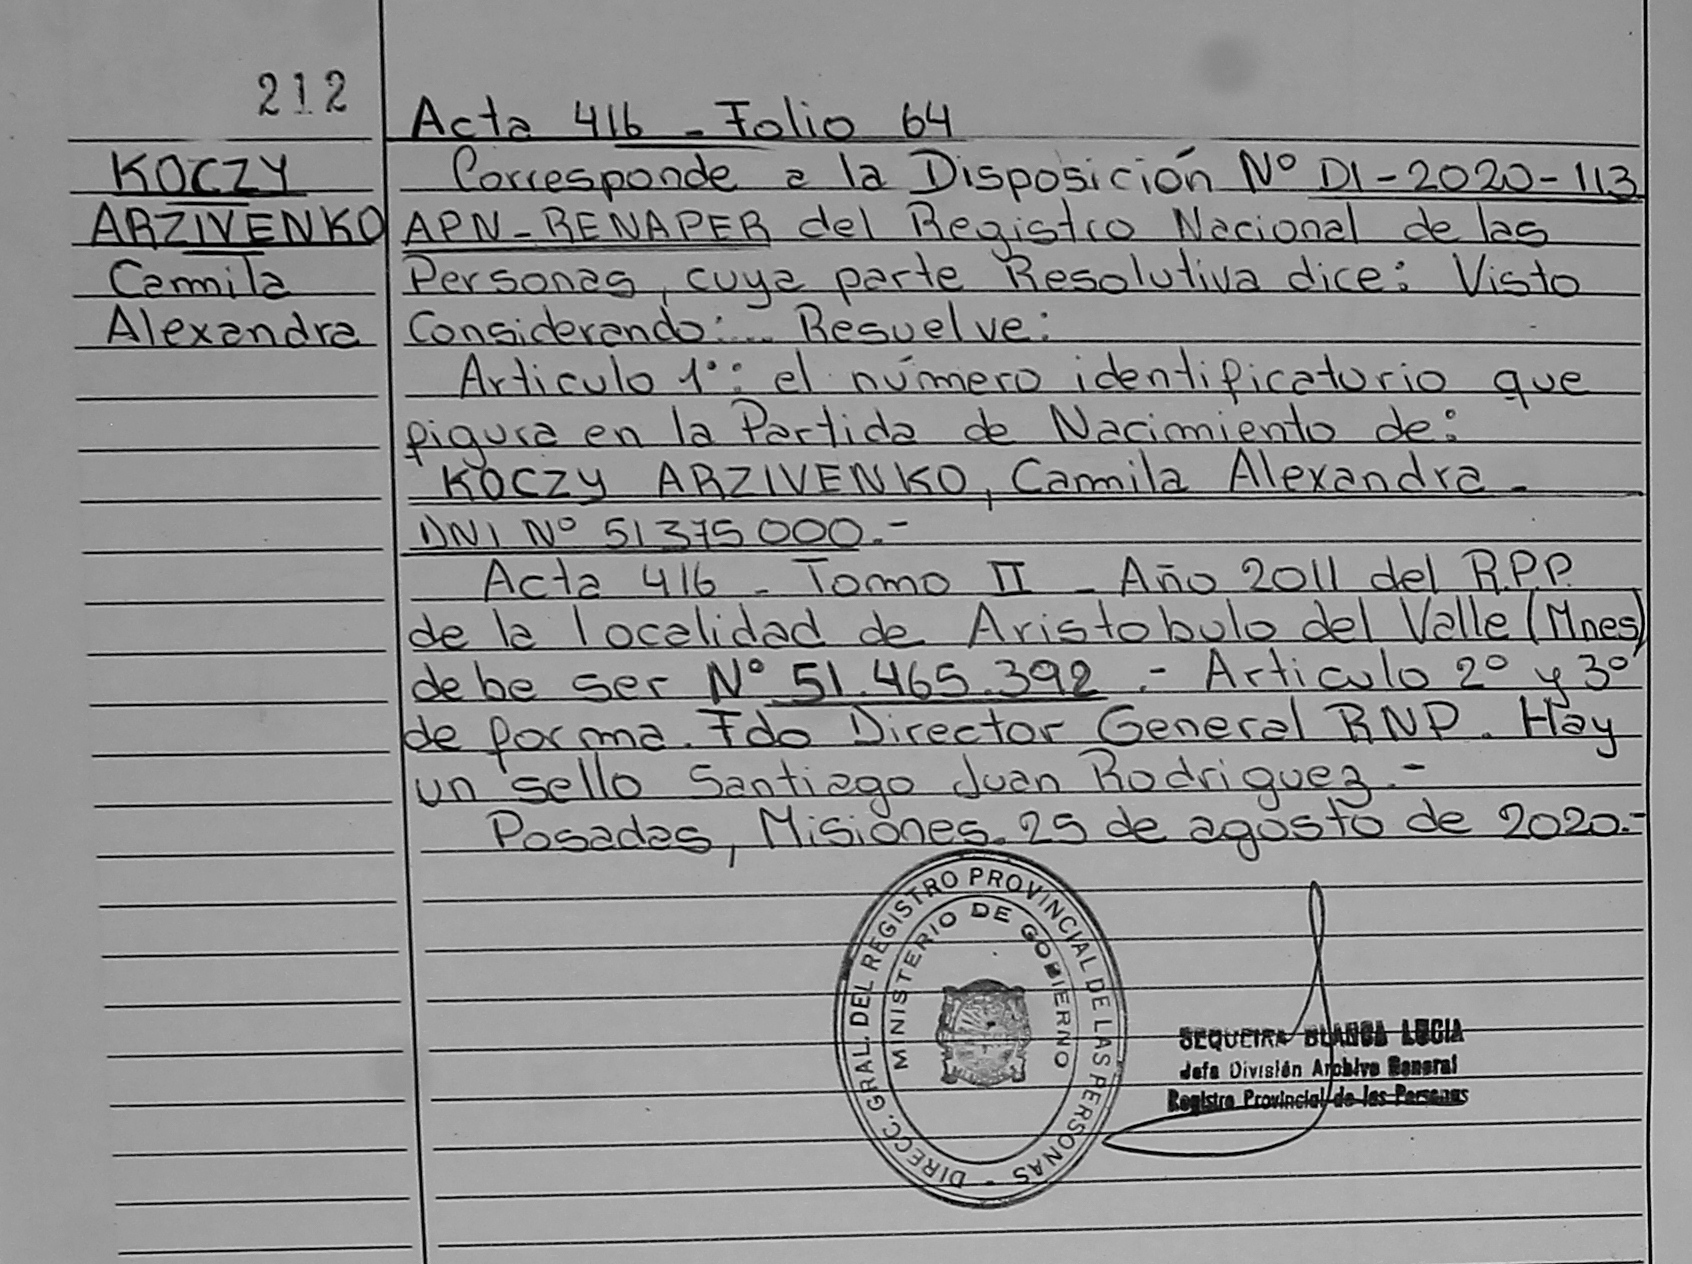 212
Acta 416 - Folio 64
KOCZY
ARZIVENKO
Camila
Alexandra
Corresponde a la Disposición Nº DI-2020-113
APN-RENAPER del Registro Nacional de las
Personas, cuya parte Resolutiva dice: Visto
Considerando:... Resuelve:
Articulo 1º: el número identificatorio que
figura en la Partida de Nacimiento de:
KOCZY ARZIVENKO, Camila Alexandra -
DNI Nº 51375000.-
Acta 416 - Tomo II - Año 2011 del R.P.P.
de la localidad de Aristobulo del Valle (Mnes)
debe ser Nº 51.465.392.- Articulo 2º y 3º
de forma. Fdo Director General RNP. Hay
un sello Santiago Juan Rodriguez.-
Posadas, Misiones. 25 de agosto de 2020.-
DIRECC. GRAL. DEL REGISTRO PROVINCIAL DE LAS PERSONAS -
MINISTERIO DE GOBIERNO
SEQUEIRA BLANCA LUCIA
Jefa División Archivo General
Registro Provincial de las Personas